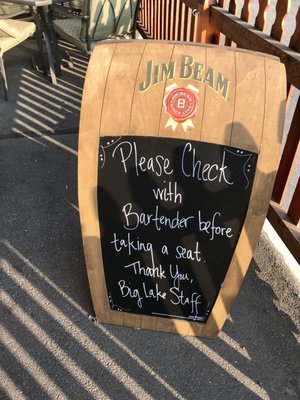 JIM BEAM
Please Check
with
Bartender before
taking a seat.
Thank You,
Big Lake Staff